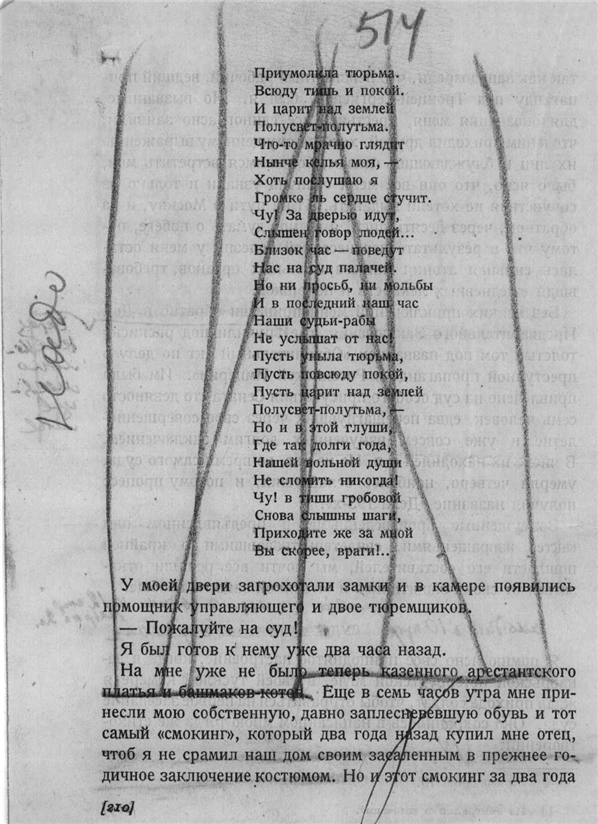 514
Приумолкла тюрьма.
Всюду тишь и покой.
И царит над землей
Полусвет-полутьма.
Что-то мрачно глядит
Нынче келья моя, —
Хоть послушаю я
Громко ль сердце стучит.
Чу! За дверью идут,
Слышен говор людей...
Близок час — поведут
Нас на суд палачей.
Но ни просьб, ни мольбы
И в последний наш час
Наши судьи-рабы
Не услышат от нас!
Пусть уныла тюрьма,
Пусть повсюду покой,
Пусть царит над землей
Полусвет-полутьма, —
Но и в этой глуши,
Где так долги года,
Нашей вольной души
Не сломить никогда!
Чу! в тиши гробовой
Снова слышны шаги,
Приходите же за мной
Вы скорее, враги!..
У моей двери загрохотали замки и в камере появились
помощник управляющего и двое тюремщиков.
— Пожалуйте на суд!
Я был готов к нему уже два часа назад.
На мне уже не было теперь казенного арестантского
платья и башмаков-котов. Еще в семь часов утра мне при-
несли мою собственную, давно заплесневевшую обувь и тот
самый «смокинг», который два года назад купил мне отец,
чтоб я не срамил наш дом своим засаленным в прежнее го-
дичное заключение костюмом. Но и этот смокинг за два года
[210]